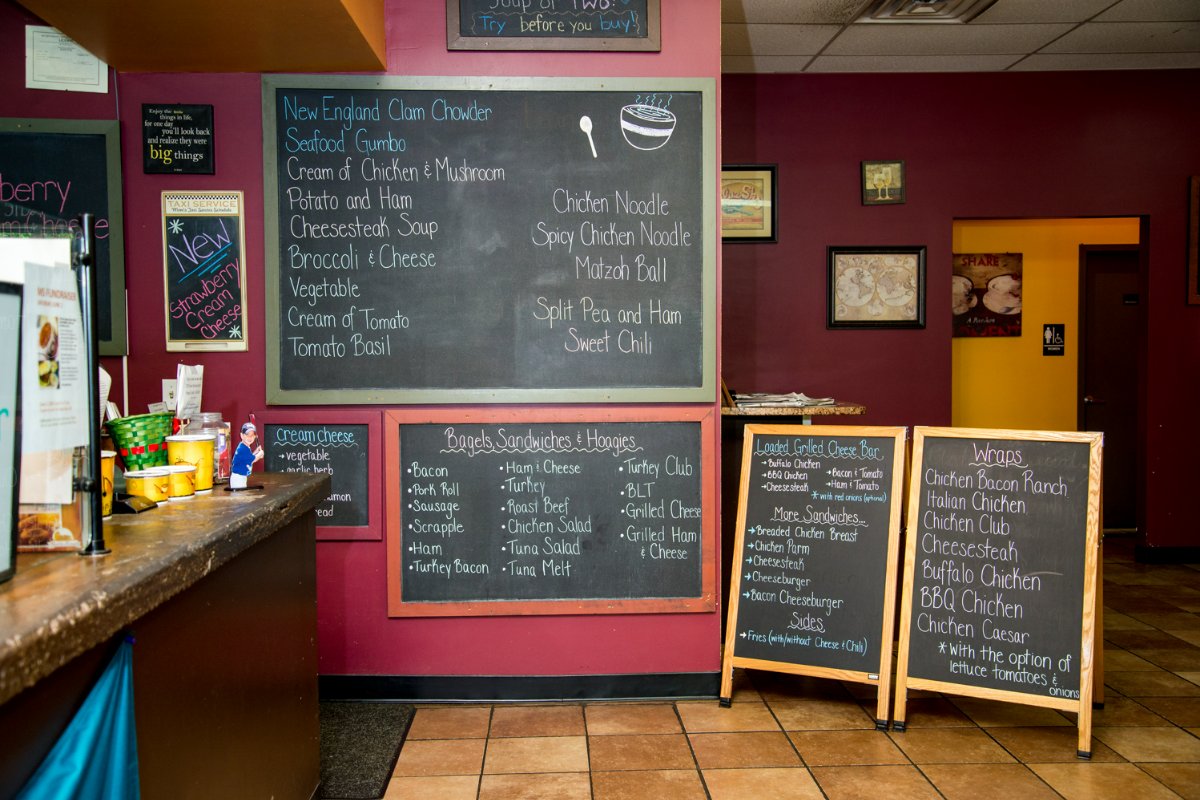 Soup or Two!
Try before you buy!!
Enjoy the little
things in life,
for one day
you'll look back
and realize they were
big things
TAXI SERVICE
New
Strawberry
Cream
Cheese
New England Clam Chowder
Seafood Gumbo
Cream of Chicken & Mushroom
Potato and Ham
Cheesesteak Soup
Broccoli & Cheese
Vegetable
Cream of Tomato
Tomato Basil
Chicken Noodle
Spicy Chicken Noodle
Matzoh Ball
Split Pea and Ham
Sweet Chili
Cream cheese
→vegetable
garlic herb
Bagels, Sandwiches & Hoagies
•Bacon
•Pork Roll
•Sausage
•Scrapple
•Ham
•Turkey Bacon
•Ham & Cheese
•Turkey
•Roast Beef
•Chicken Salad
•Tuna Salad
•Tuna Melt
•Turkey Club
•BLT
•Grilled Cheese
•Grilled Ham
& Cheese
Loaded Grilled Cheese Bar
→Buffalo Chicken
→BBQ Chicken
→Cheesesteak
→Bacon & Tomato
→Ham & Tomato
*with red onions (optional)
More Sandwiches...
→Breaded Chicken Breast
→Chicken Parm
→Cheesesteak
→Cheeseburger
→Bacon Cheeseburger
Sides
→Fries (with/without Cheese & Chili)
Wraps
Chicken Bacon Ranch
Italian Chicken
Chicken Club
Cheesesteak
Buffalo Chicken
BBQ Chicken
Chicken Caesar
*With the option of
lettuce tomatoes &
onions
SHARE
WOMEN